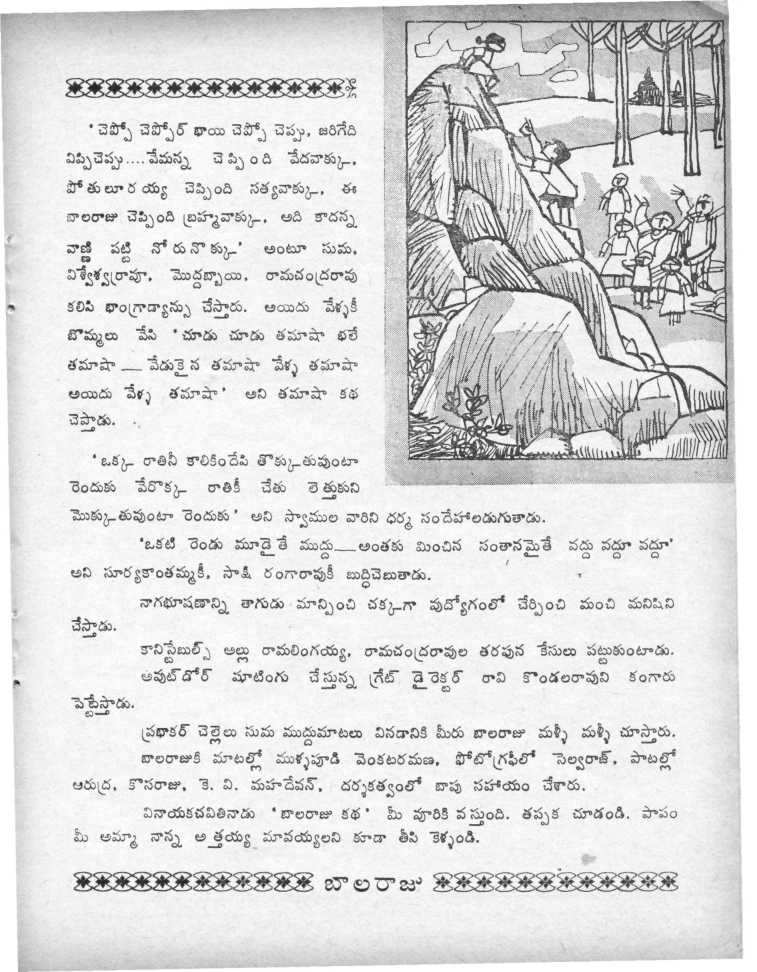 'చెప్పో చెప్పోర్ భాయి చెప్పో చెప్పు, జరిగేది
విప్పిచెప్పు....వేమన్న చెప్పింది వేదవాక్కు,
పోతులూరయ్య చెప్పింది సత్యవాక్కు, ఈ
బాలరాజు చెప్పింది బ్రహ్మవాక్కు, అది కాదన్న
వాణ్ణి పట్టి నోరునొక్కు' అంటూ సుమ,
విశ్వేశ్వర్రావూ, మొద్దబ్బాయి, రామచంద్రరావు
కలిసి భాంగ్రాడ్యాన్సు చేస్తారు. అయిదు వేళ్ళకీ
బొమ్మలు వేసి 'చూడు చూడు తమాషా భలే
తమాషా — వేడుకైన తమాషా వేళ్ళ తమాషా
అయిదు వేళ్ళ తమాషా' అని తమాషా కథ
చెప్తాడు.
'ఒక్క రాతినీ కాలికిందేసి తొక్కుతువుంటా
రెందుకు వేరొక్క రాతికీ చేతు లెత్తుకుని
మొక్కుతువుంటా రెందుకు' అని స్వాముల వారిని ధర్మ సందేహాలడుగుతాడు.
'ఒకటి రెండు మూడైతే ముద్దు—అంతకు మించిన సంతానమైతే వద్దు వద్దూ వద్దూ'
అని సూర్యకాంతమ్మకీ, సాక్షి రంగారావుకీ బుద్ధిచెబుతాడు.
నాగభూషణాన్ని తాగుడు మాన్పించి చక్కగా వుద్యోగంలో చేర్పించి మంచి మనిషిని
చేస్తాడు.
కానిస్టేబుల్స్ అల్లు రామలింగయ్య, రామచంద్రరావుల తరఫున కేసులు పట్టుకుంటాడు.
అవుట్‌డోర్ షూటింగు చేస్తున్న గ్రేట్ డైరెక్టర్ రావి కొండలరావుని కంగారు
పెట్టేస్తాడు.
ప్రభాకర్ చెల్లెలు సుమ ముద్దుమాటలు వినడానికి మీరు బాలరాజు మళ్ళీ మళ్ళీ చూస్తారు.
బాలరాజుకి మాటల్లో ముళ్ళపూడి వెంకటరమణ, ఫోటోగ్రఫీలో సెల్వరాజ్, పాటల్లో
ఆరుద్ర, కొసరాజు, కె. వి. మహదేవన్, దర్శకత్వంలో బాపు సహాయం చేశారు.
వినాయకచవితినాడు 'బాలరాజు కథ' మీ వూరికి వస్తుంది. తప్పక చూడండి. పాపం
మీ అమ్మా నాన్న అత్తయ్య మావయ్యలని కూడా తీసి కెళ్ళండి.
బాలరాజు